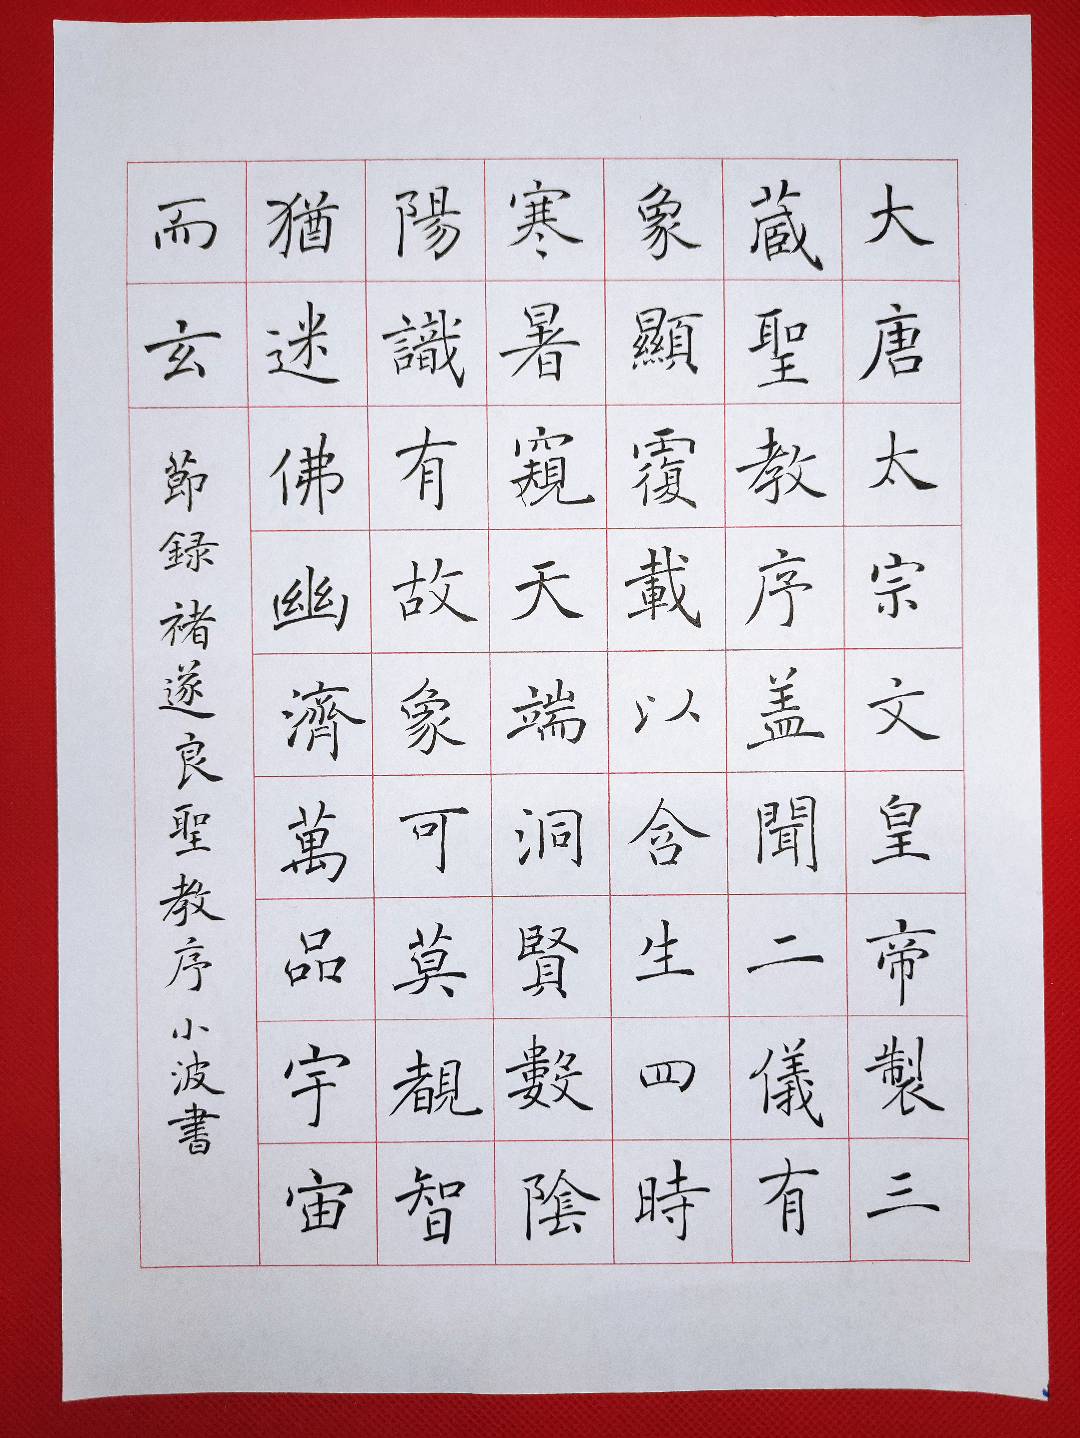 大唐太宗文皇帝製三
蔵聖教序盖聞二儀有
象顯覆載以含生四時
寒暑窺天端洞賢數陰
陽識有故象可莫覩智
猶迷佛幽濟萬品宇宙
而玄
節録褚遂良聖教序小波書